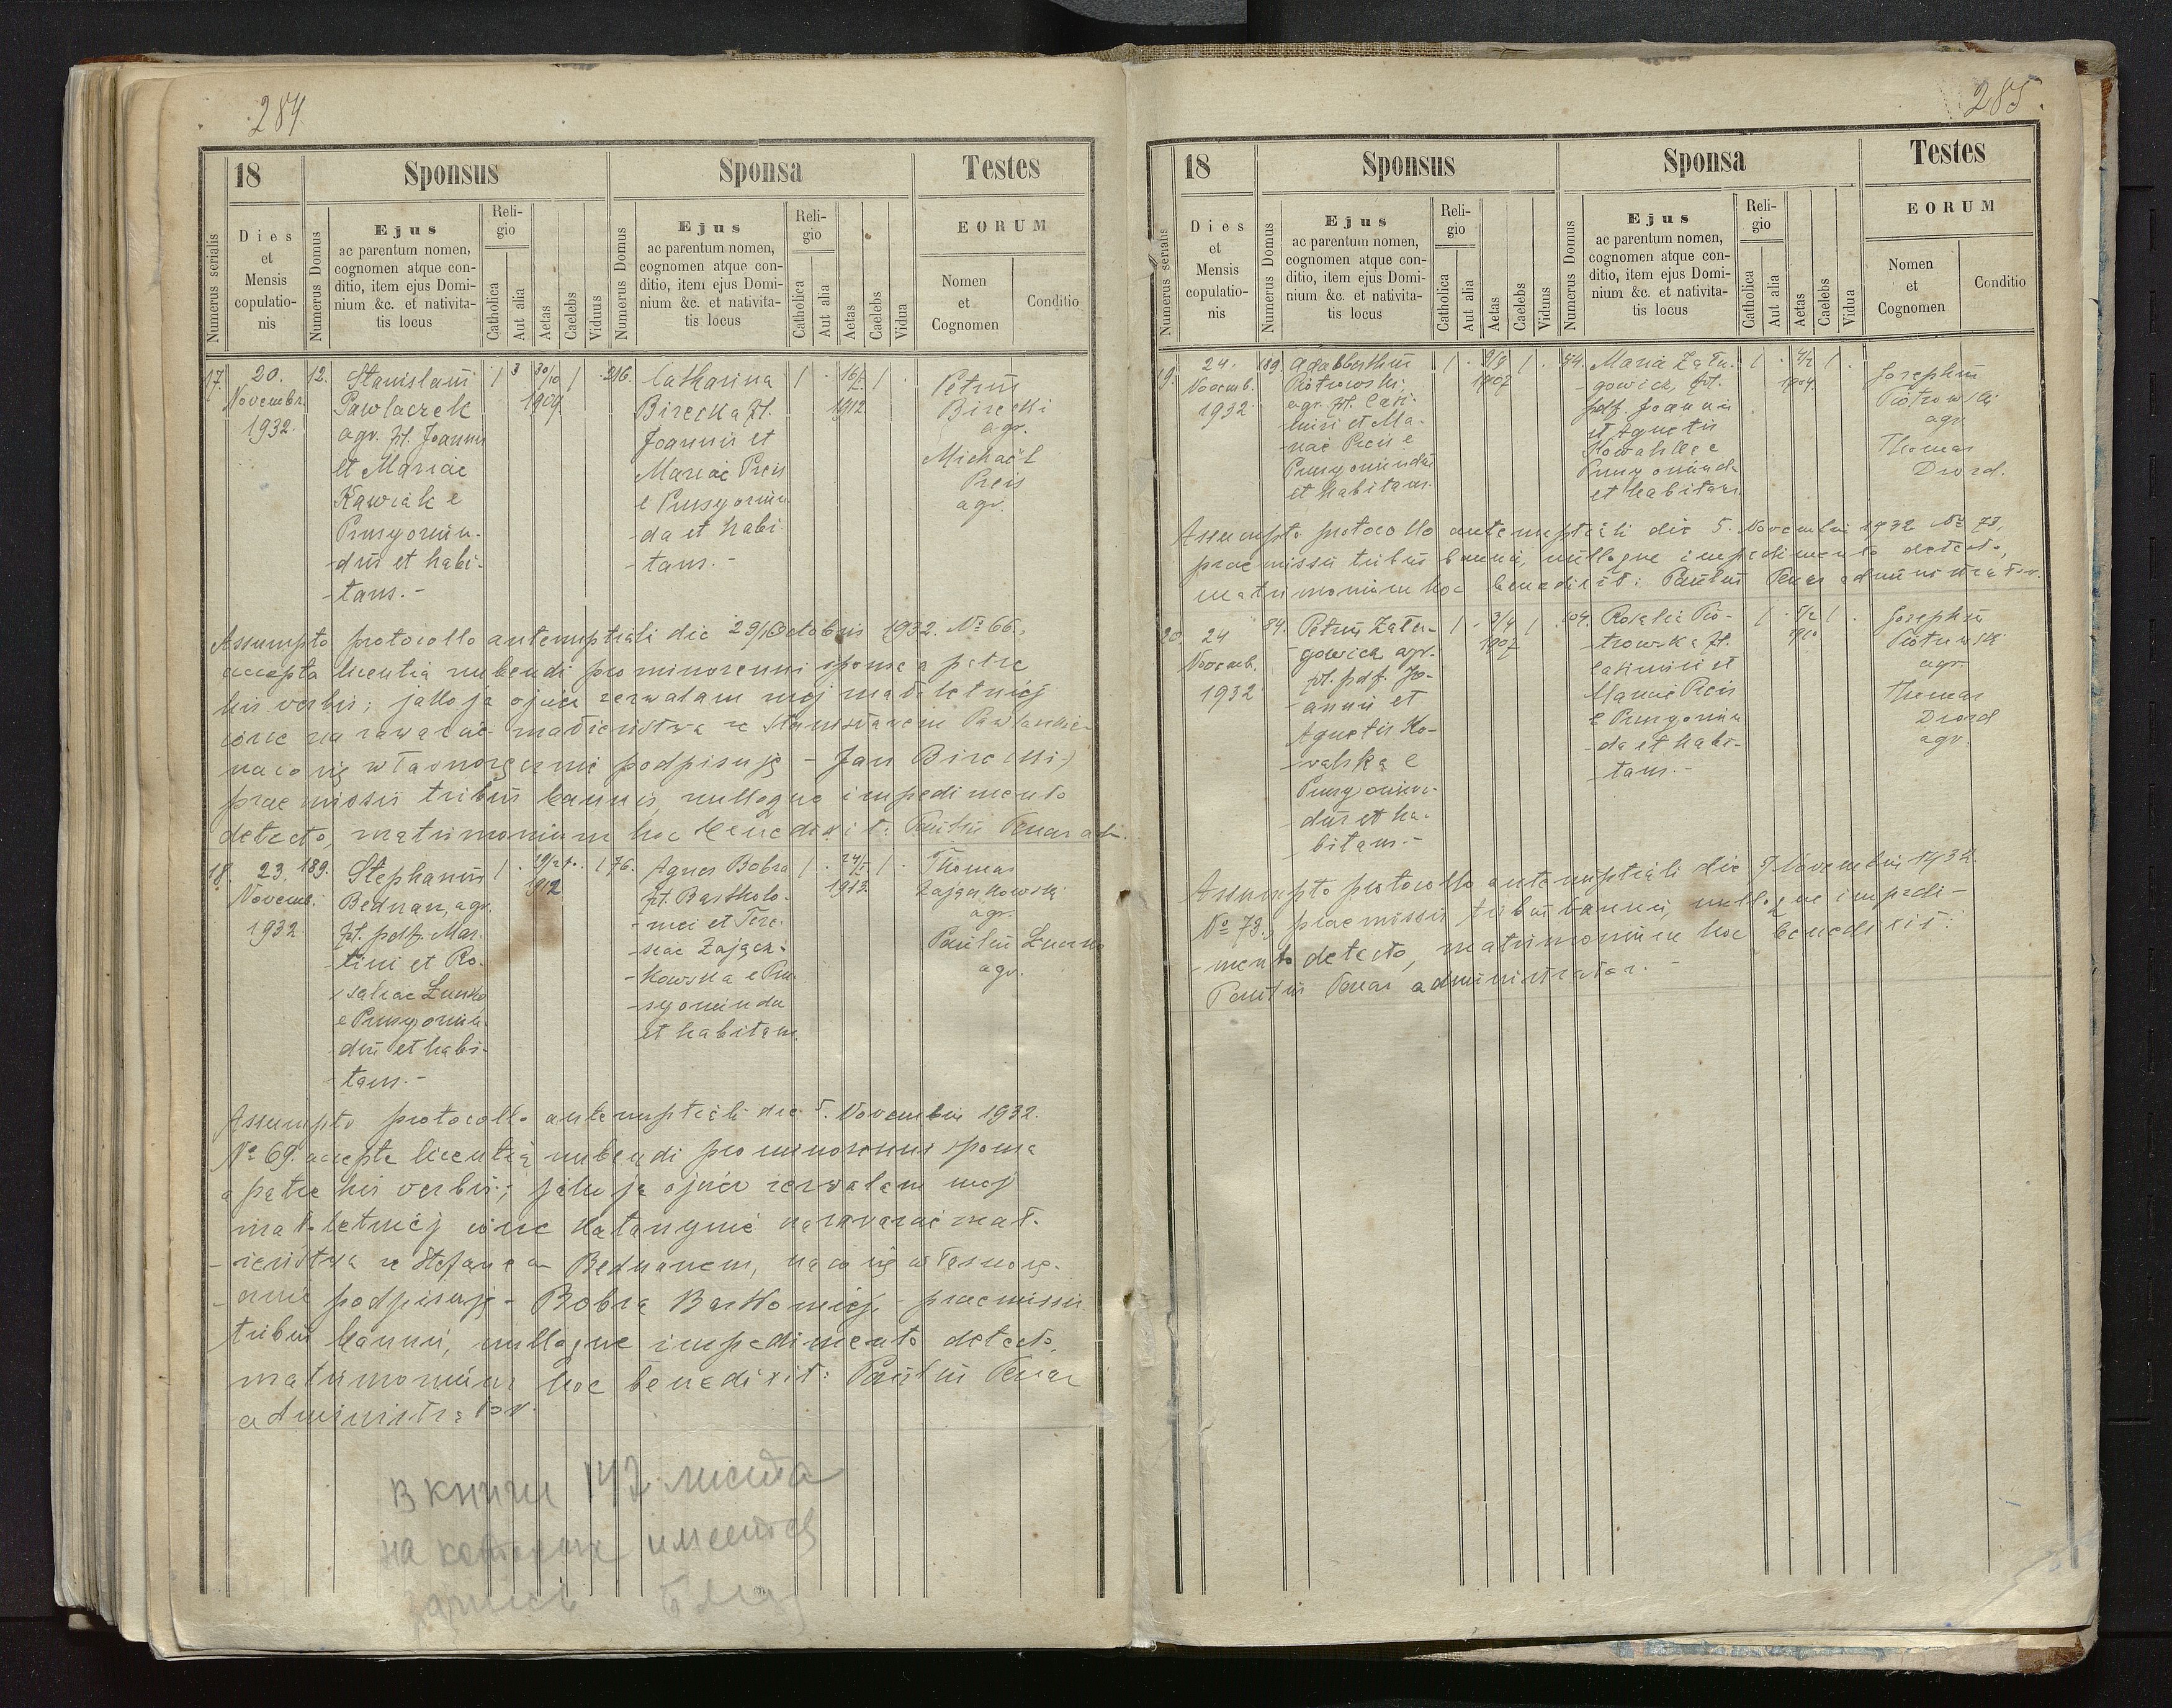 284
18
Sponsus
Sponsa
Testes
Numerus serialis
Dies
et
Mensis
copulatio-
nis
Numerus Domus
Ejus
ac parentum nomen,
cognomen atque con-
ditio, item ejus Domi-
nium &c. et nativita-
tis locus
Reli-
gio
Catholica
Aut alia
Aetas
Caelebs
Viduus
Numerus Domus
Ejus
ac parentum nomen,
cognomen atque con-
ditio, item ejus Domi-
nium &c. et nativita-
tis locus
Reli-
gio
Catholica
Aut alia
Aetas
Caelebs
Vidua
EORUM
Nomen
et
Cognomen
Conditio
17.
20.
Novembr.
1932.
12.
Stanislaus
Pawlaczek
agr. fil. Joannis
et Mariae
Kawiak e
Prusy oriun-
-dus et habi-
-tans.-
30/10
1904
216.
Catharina
Birecka fil.
Joannis et
Mariae Preis
e Prusy oriun-
-da et habi-
-tans.-
1912.
Petrus
Birecki
agr.
Michaël
Preis
agr.
Assumpto protocollo antenuptiali die 29/Octobris 1932. No 66.,
accepta licentia nubendi pro minorenni sponsa a patre
his verbis: jako ja ojciec zezwalam mej małoletniej
córce na zawarcie małżeństwa ze Stanisławem
na co się własnoręcznie podpisuję - Jan Birecki -)
praemissis tribus bannis, nulloque impedimento
detecto, matrimonium hoc benedixit: Paulus Penar
18.
23.
Novemb.
1932
189.
Stephanus
Bednarz, agr.
fil. pdf. Mar-
-tini et Ro-
-saliae Łuszko
e Prusy oriun-
-dus et habi-
-tans.-
1912
76.
Agnes Bobra
fil. Bartholo-
-mei et Tere-
-siae Zającz-
-kowska e Pru-
-sy oriunda
et habitans.
1913.
Thomas
Zajączkowski
agr.
Paulus
agr.
Assumpto protocollo antenuptiali die 5. Novembris 1932.
No 69. accepta licentia nubendi pro minorenni sponsa
a patre his verbis; jako ja ojciec zezwalam mej
małoletniej córce Katarzynie na zawarcie mał-
-żeństwa ze Stefanem Bednarzem, na co się własnorę-
-cznie podpisuję - Bobra Bartłomiej, - praemissis
tribus bannis, nulloque impedimento detecto,
matrimonium hoc benedixit: Paulus Penar
administrator.
В книги 142 листа
на которых имеется
запись
285.
18
Sponsus
Sponsa
Testes
Numerus serialis
Dies
et
Mensis
copulatio-
nis
Numerus Domus
Ejus
ac parentum nomen,
cognomen atque con-
ditio, item ejus Domi-
nium &c. et nativita-
tis locus
Reli-
gio
Catholica
Aut alia
Aetas
Caelebs
Viduus
Numerus Domus
Ejus
ac parentum nomen,
cognomen atque con-
ditio, item ejus Domi-
nium &c. et nativita-
tis locus
Reli-
gio
Catholica
Aut alia
Aetas
Caelebs
Vidua
EORUM
Nomen
et
Cognomen
Conditio
19.
24.
Novemb.
1932.
189.
Adalberthus
Piotrowski,
agr. fil. Casi-
miri et Ma-
riae Preis e
Prusy oriundus
et habitans.
1907
54.
Maria
-gowicz, fil.
pdf. Joannis
et Agnetis
Kowalska e
Prusy oriunda
et habitans.
1909
Josephus
Piotrowski
agr.
Thomas
Assumpto protocollo antenuptiali die 5. Novembris 1932 No 73,
praemissis tribus bannis, nulloque impedimento detecto,
matrimonium hoc benedixit: Paulus Penar administrator.
20.
24
Novemb.
1932
84.
Petrus
-gowicz agr.
fil. pdf. Jo-
-annis et
Agnetis Ko-
-walska e
Prusy oriun-
-dus et ha-
-bitans.-
3/4
1907
Rosalia Pio-
-trowska fil.
Casimiri et
Mariae Preis
e Prusy oriun-
-da et habi-
-tans.-
1910
Josephus
Piotrowski
agr.
Thomas
agr.
Assumpto protocollo antenuptiali die 5 Novembris 1932.
No 73., praemissis tribus bannis, nulloque impedi-
-mento detecto, matrimonium hoc benedixit:
Paulus Penar administrator.-